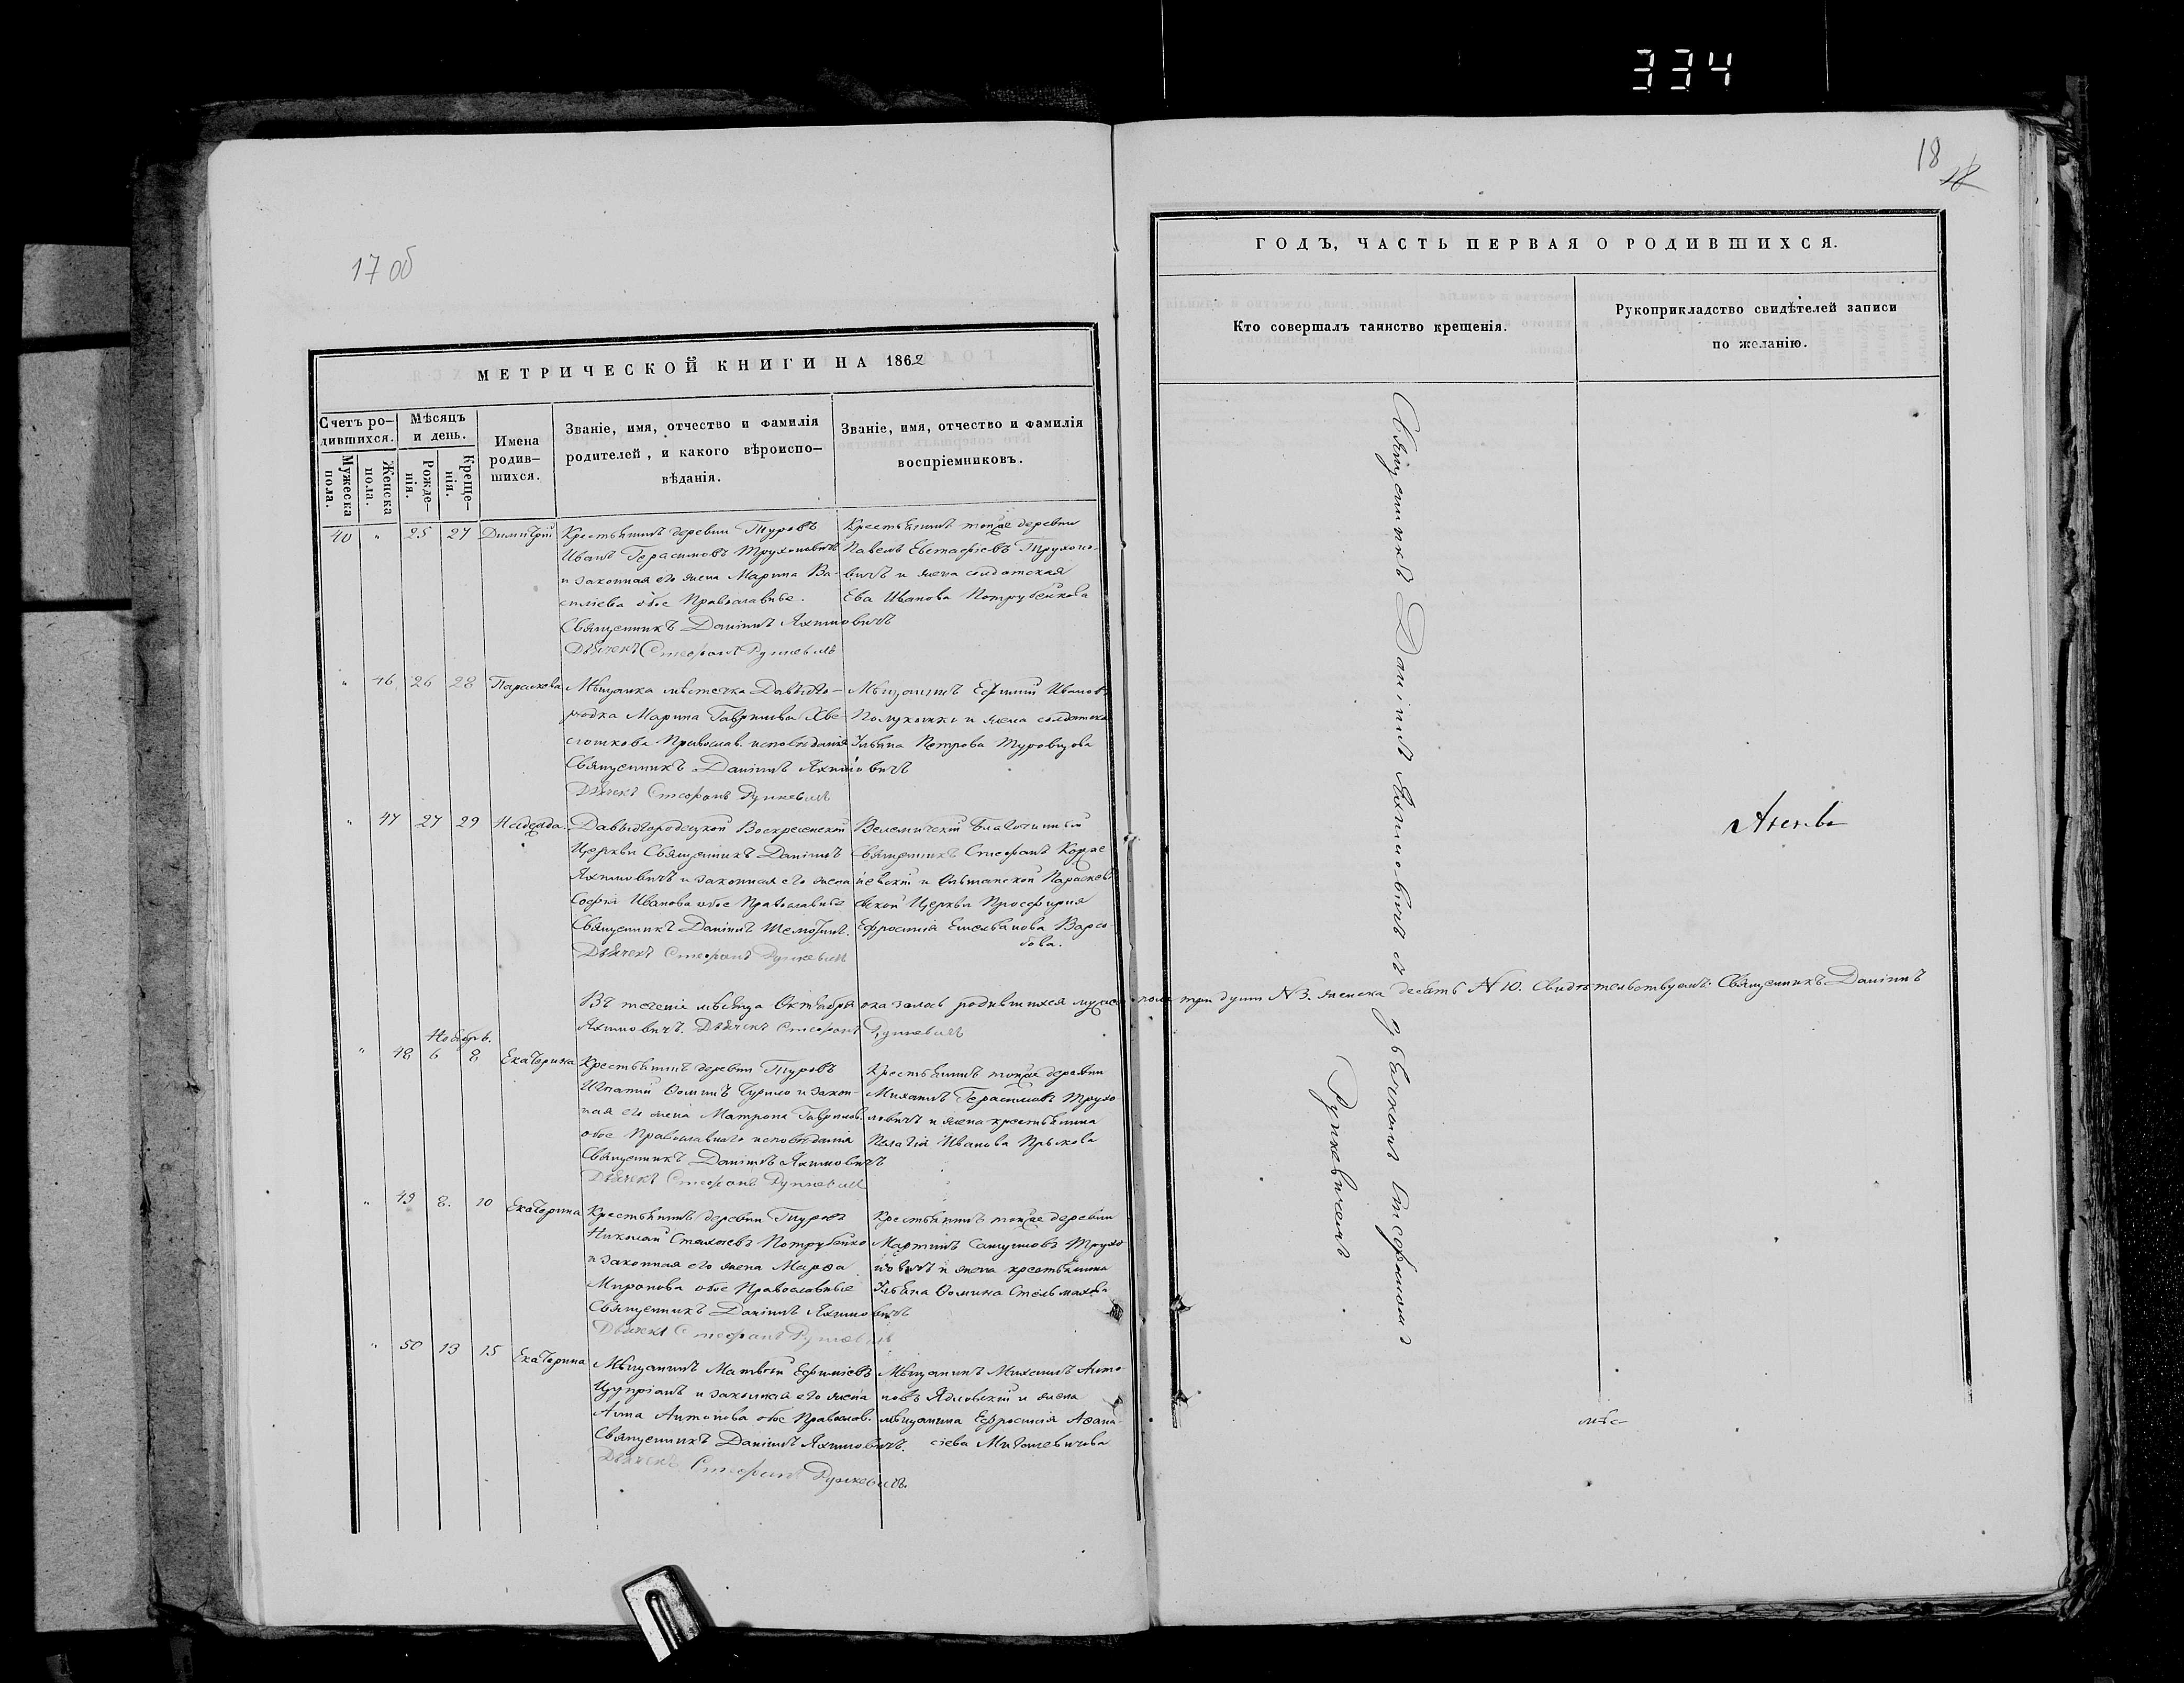 334
18
18
17 об
МЕТРИЧЕСКОЙ КНИГИ НА 1862
Счетъ ро-
дившихся.
Мужеска
пола.
Женска
пола.
Мѣсяцъ
и день.
Рожде-
нія.
Креще-
нія.
Имена
родив-
шихся.
Званіе, имя, отчество и фамилія
родителей, и какого вѣроиспо-
вѣданія.
Званіе, имя, отчество и фамилія
воспріемниковъ.
40 " 25 27 Димитрій
Крестьянинъ деревни Туровъ
Иванъ Герасимовъ Трухоновичъ
и законная его жена Марина Ва-
силіева обое Православные.
Священникъ Даніилъ Яхимовичъ
Дьячекъ Стефанъ Рункевичъ
Крестьянинъ тойже деревни
Павелъ Евстафіевъ Трухоно-
вичъ и жена солдатская
Ева Иванова Потрубейкова
" 46 26 28 Параскева
Мѣщанка мѣстечка Давыдго-
родка Марина Гаврилова
Православ. исповѣданія
Священникъ Даніилъ Яхимовичъ
Дьячекъ Стефанъ Рункевичъ
Мѣщанинъ Ефимій Ивановъ
Полукошко и жена солдатска
Ульяна Петрова Туровцова
" 47 27 29 Надежда.
Давыдгородецкой Воскресенской
Церкви Священникъ Даніилъ
Яхимовичъ и законная его жена
Софія Иванова обое Православные
Священникъ Даніилъ
Дьячекъ Стефанъ Рункевичъ
Велемичскій Благочинный
Священникъ Стефанъ Корже
невскій и Ольшанской Параскев
ской Церкви Просфирня
Ефросинія Емельянова Варсо-
бова.
Въ теченіе мѣсяца Октября оказалось родившихся мужеска пола три души N 3. женска десять N 10. Свидѣтельствуемъ: Священникъ Даніилъ
Яхимовичъ. Дьячекъ Стефанъ Рункевичъ
Ноябрь.
" 48 6 8 Екатерина
Крестьянинъ деревни Туровъ
Игнатій Ѳоминъ Чурило и закон-
ная его жена Матрона Гаврилов.
обое Православнаго исповѣданія
Священникъ Даніилъ Яхимовичъ
Дьячекъ Стефанъ Рункевичъ
Крестьянинъ тойже деревни
Михаилъ Герасимовъ Трухо
новичъ и жена крестьянина
Пелагія Иванова
" 49 8. 10 Екатерина
Крестьянинъ деревни Туровъ
Николай Потрубейко
и законная его жена Марѳа
Миронова обое Православные
Священникъ Даніилъ Яхимовичъ
Дьячекъ Стефанъ Рункевичъ
Крестьянинъ тойже деревни
Мартинъ Самуиловъ Трухо
новичъ и жена крестьянина
Ульяна Ѳомина Стельмахова
" 50 13 15 Екатерина
Мѣщанинъ Матвѣй Ефиміевъ
и законная его жена
Анна Антонова обое Православ.
Священникъ Даніилъ Яхимовичъ.
Дьячекъ Стефанъ Рункевичъ.
Мѣщанинъ Михаилъ Анто-
новъ Ядловскій и жена
мѣщанина Ефросинія Аѳана-
сіева Митошевичова
ГОДЪ, ЧАСТЬ ПЕРВАЯ О РОДИВШИХСЯ.
Кто совершалъ таинство крещенія.
Рукоприкладство свидѣтелей записи
по желанію.
Священникъ Даніилъ Яхимовичъ съ дьячкомъ Стефаномъ
Рункевичемъ